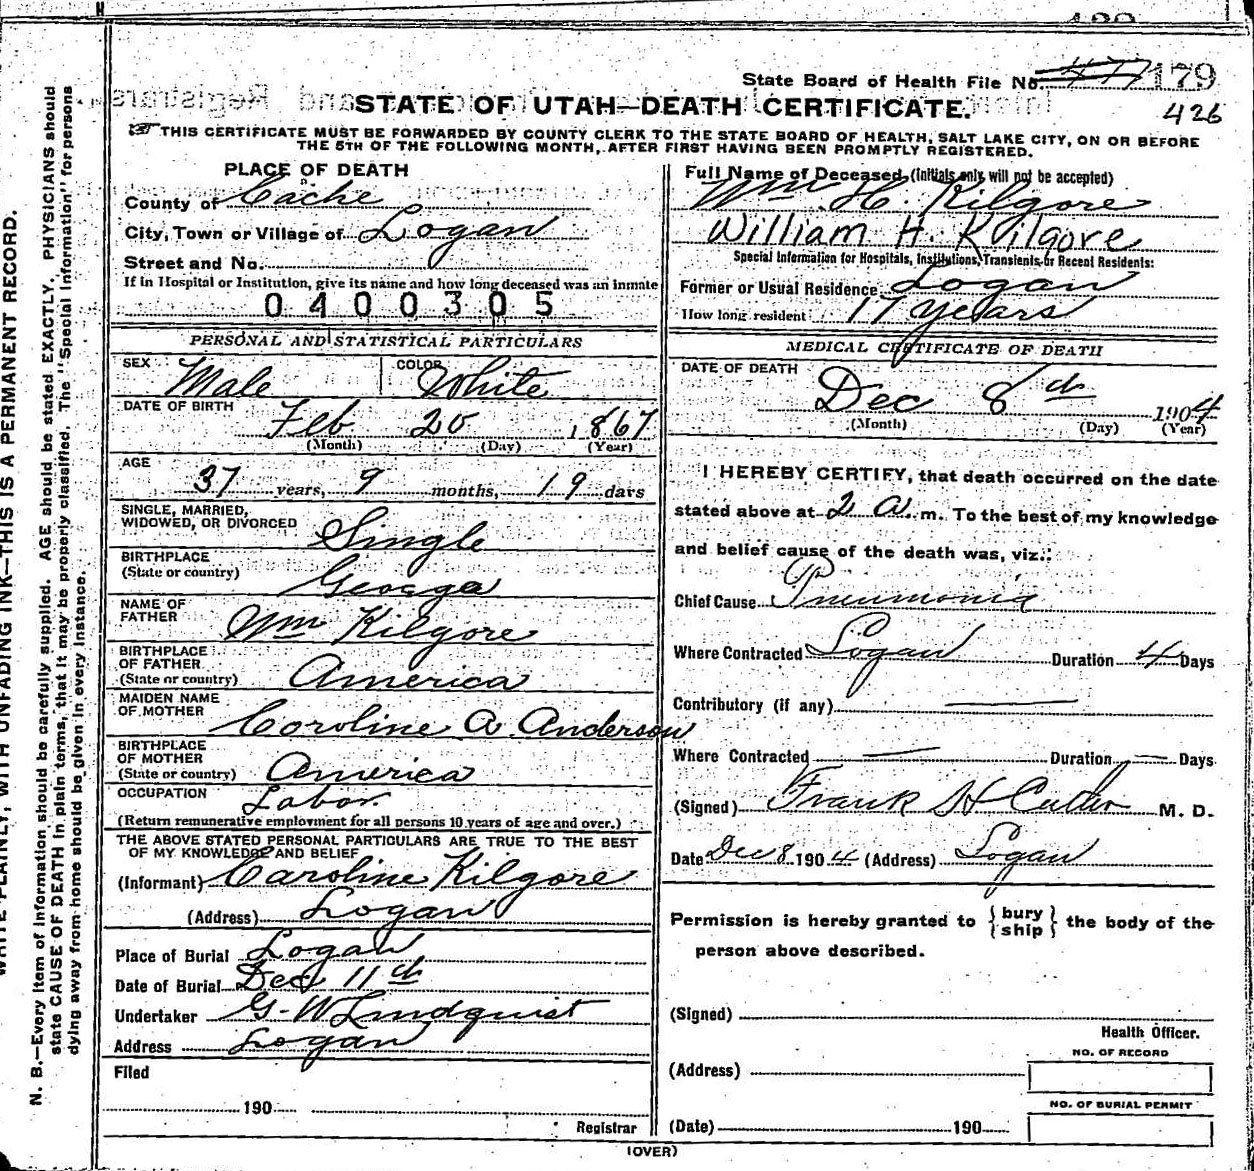 State Board of Health File No. 477 179
426
STATE OF UTAH—DEATH CERTIFICATE.
THIS CERTIFICATE MUST BE FORWARDED BY COUNTY CLERK TO THE STATE BOARD OF HEALTH, SALT LAKE CITY, ON OR BEFORE
THE 5TH OF THE FOLLOWING MONTH, AFTER FIRST HAVING BEEN PROMPTLY REGISTERED.
PLACE OF DEATH
County of Cache
City, Town or Village of Logan
Street and No.
If in Hospital or Institution, give its name and how long deceased was an inmate
0400305
PERSONAL AND STATISTICAL PARTICULARS
SEX Male COLOR White
DATE OF BIRTH
Feb 20 1867
(Month) (Day) (Year)
AGE
37 years, 9 months, 19 days
SINGLE, MARRIED,
WIDOWED, OR DIVORCED Single
BIRTHPLACE
(State or country) Georgea
NAME OF
FATHER Wm Kilgore
BIRTHPLACE
OF FATHER
(State or country) America
MAIDEN NAME
OF MOTHER Coroline A Anderson
BIRTHPLACE
OF MOTHER
(State or country) America
OCCUPATION Labor
(Return remunerative employment for all persons 10 years of age and over.)
THE ABOVE STATED PERSONAL PARTICULARS ARE TRUE TO THE BEST
OF MY KNOWLEDGE AND BELIEF
(Informant) Caroline Kilgore
(Address) Logan
Place of Burial Logan
Date of Burial Dec 11th
Undertaker G-W Lindquist
Address Logan
Filed
190
Registrar
Full Name of Deceased (Initials only will not be accepted)
Wm. H. Kilgore
William H. Kilgore
Special Information for Hospitals, Institutions, Transients or Recent Residents:
Former or Usual Residence Logan
How long resident 17 years
MEDICAL CERTIFICATE OF DEATH
DATE OF DEATH
Dec 8th 1904
(Month) (Day) (Year)
I HEREBY CERTIFY, that death occurred on the date
stated above at 2 A. m. To the best of my knowledge
and belief cause of the death was, viz.:
Chief Cause Pneumonia
Where Contracted Logan Duration 4 Days
Contributory (if any) —
Where Contracted — Duration — Days
(Signed) Frank H Cutler M. D.
Date Dec 8 1904 (Address) Logan
Permission is hereby granted to {bury ship} the body of the
person above described.
(Signed)
Health Officer.
NO. OF RECORD
(Address)
NO. OF BURIAL PERMIT
(Date) 190
(OVER)
N. B.—Every item of information should be carefully supplied. AGE should be stated EXACTLY. PHYSICIANS should
state CAUSE OF DEATH in plain terms, that it may be properly classified. The "Special Information" for persons
dying away from home should be given in every instance.
WRITE PLAINLY, WITH UNFADING INK—THIS IS A PERMANENT RECORD.